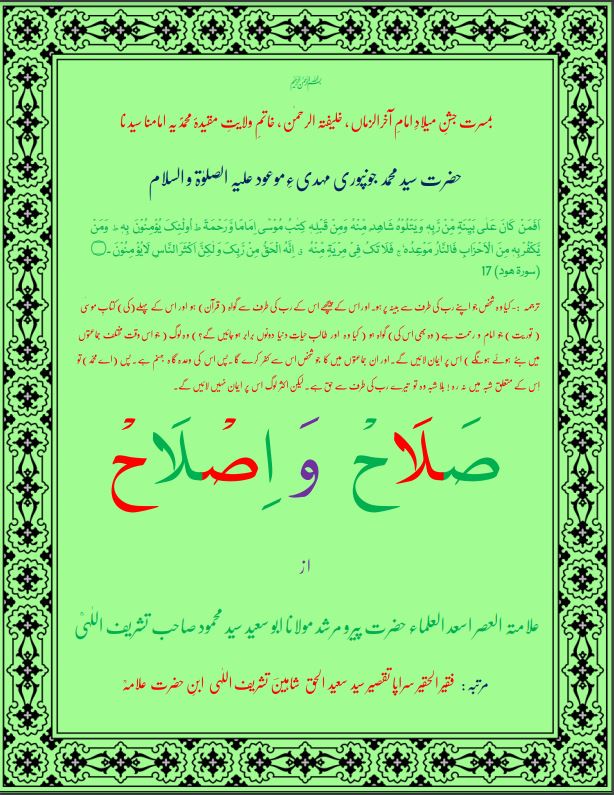 بسم اللہ الرحمٰن الرحیم
بمسرت جشنِ میلادِ امامِ آخر الزماں ، خلیفتہ الرحمٰن ، خاتمِ ولایتِ مقیدۂ محمدیہ امامنا سیدنا
حضرت سید محمد جونپوری مہدیِ موعود علیہ الصلوٰۃ و السلام
اَفَمَنْ کَانَ عَلٰی بَیِّنَۃٍ مِّنْ رَّبِّہٖ وَیَتْلُوْہُ شَاھِدٌ مِّنْہُ وَمِنْ قَبْلِہٖ کِتٰبُ مُوْسٰٓی اِمَامًا وَّرَحْمَۃً ط اُولٰٓئِکَ یُؤْمِنُوْنَ بِہٖ ط وَمَنْ
یَّکْفُرْبِہٖ مِنَ الْاَحْزَابِ فَالنَّارُ مَوْعِدُہٗ ج فَلَا تَکُ فِیْ مِرْیَۃٍ مِّنْہُ ق اِنَّہُ الْحَقُّ مِنْ رَّبِّکَ وَلٰکِنَّ اَکْثَرَ النَّاسِ لَایُؤْمِنُوْنَ ۔
(سورۃ ھود) 17
ترجمہ :۔ کیا وہ شخص جو اپنے رب کی طرف سے بینہ پر ہو۔ اور اس کے پیچھے اس کے رب کی طرف سے گواہ ( قرآن) ہو اور اس کے پہلے (کی) کتاب موسیٰ
( توریت ) جو امام و رحمت ہے ( وہ بھی اس کی) گواہ ہو ( کیا وہ اور طالب حیاتِ دنیا دونوں برابر ہو جائیں گے؟ ) وہ لوگ ( جو اس وقت مختلف جماعتوں
میں بٹے ہوئے ہونگے ) اس پر ایمان لائیں گے۔ اور ان جماعتوں میں کا جو شخص اس سے کفر کرے گا ۔ پس اس کی وعدہ گاہ جہنم ہے ۔ پس (اے محمدؐ) تو
اس کے متعلق شبہ میں نہ رہ ! بلا شبہ وہ تو تیرے رب کی طرف سے حق ہے۔ لیکن اکثر لوگ اس پر ایمان نہیں لائیں گے۔
صَلَاحْ وَ اِصْلَاحْ
از
علامتہ العصر اسعد العلماء حضرت پیر و مرشد مولانا ابو سعید سید محمود صاحب تشریف اللٰہیؒ
مرتبہ : فقیر الحقیر سراپا تقصیر سید سعید الحق شاہینؔ تشریف اللٰہی ابنِ حضرت علامہؒ